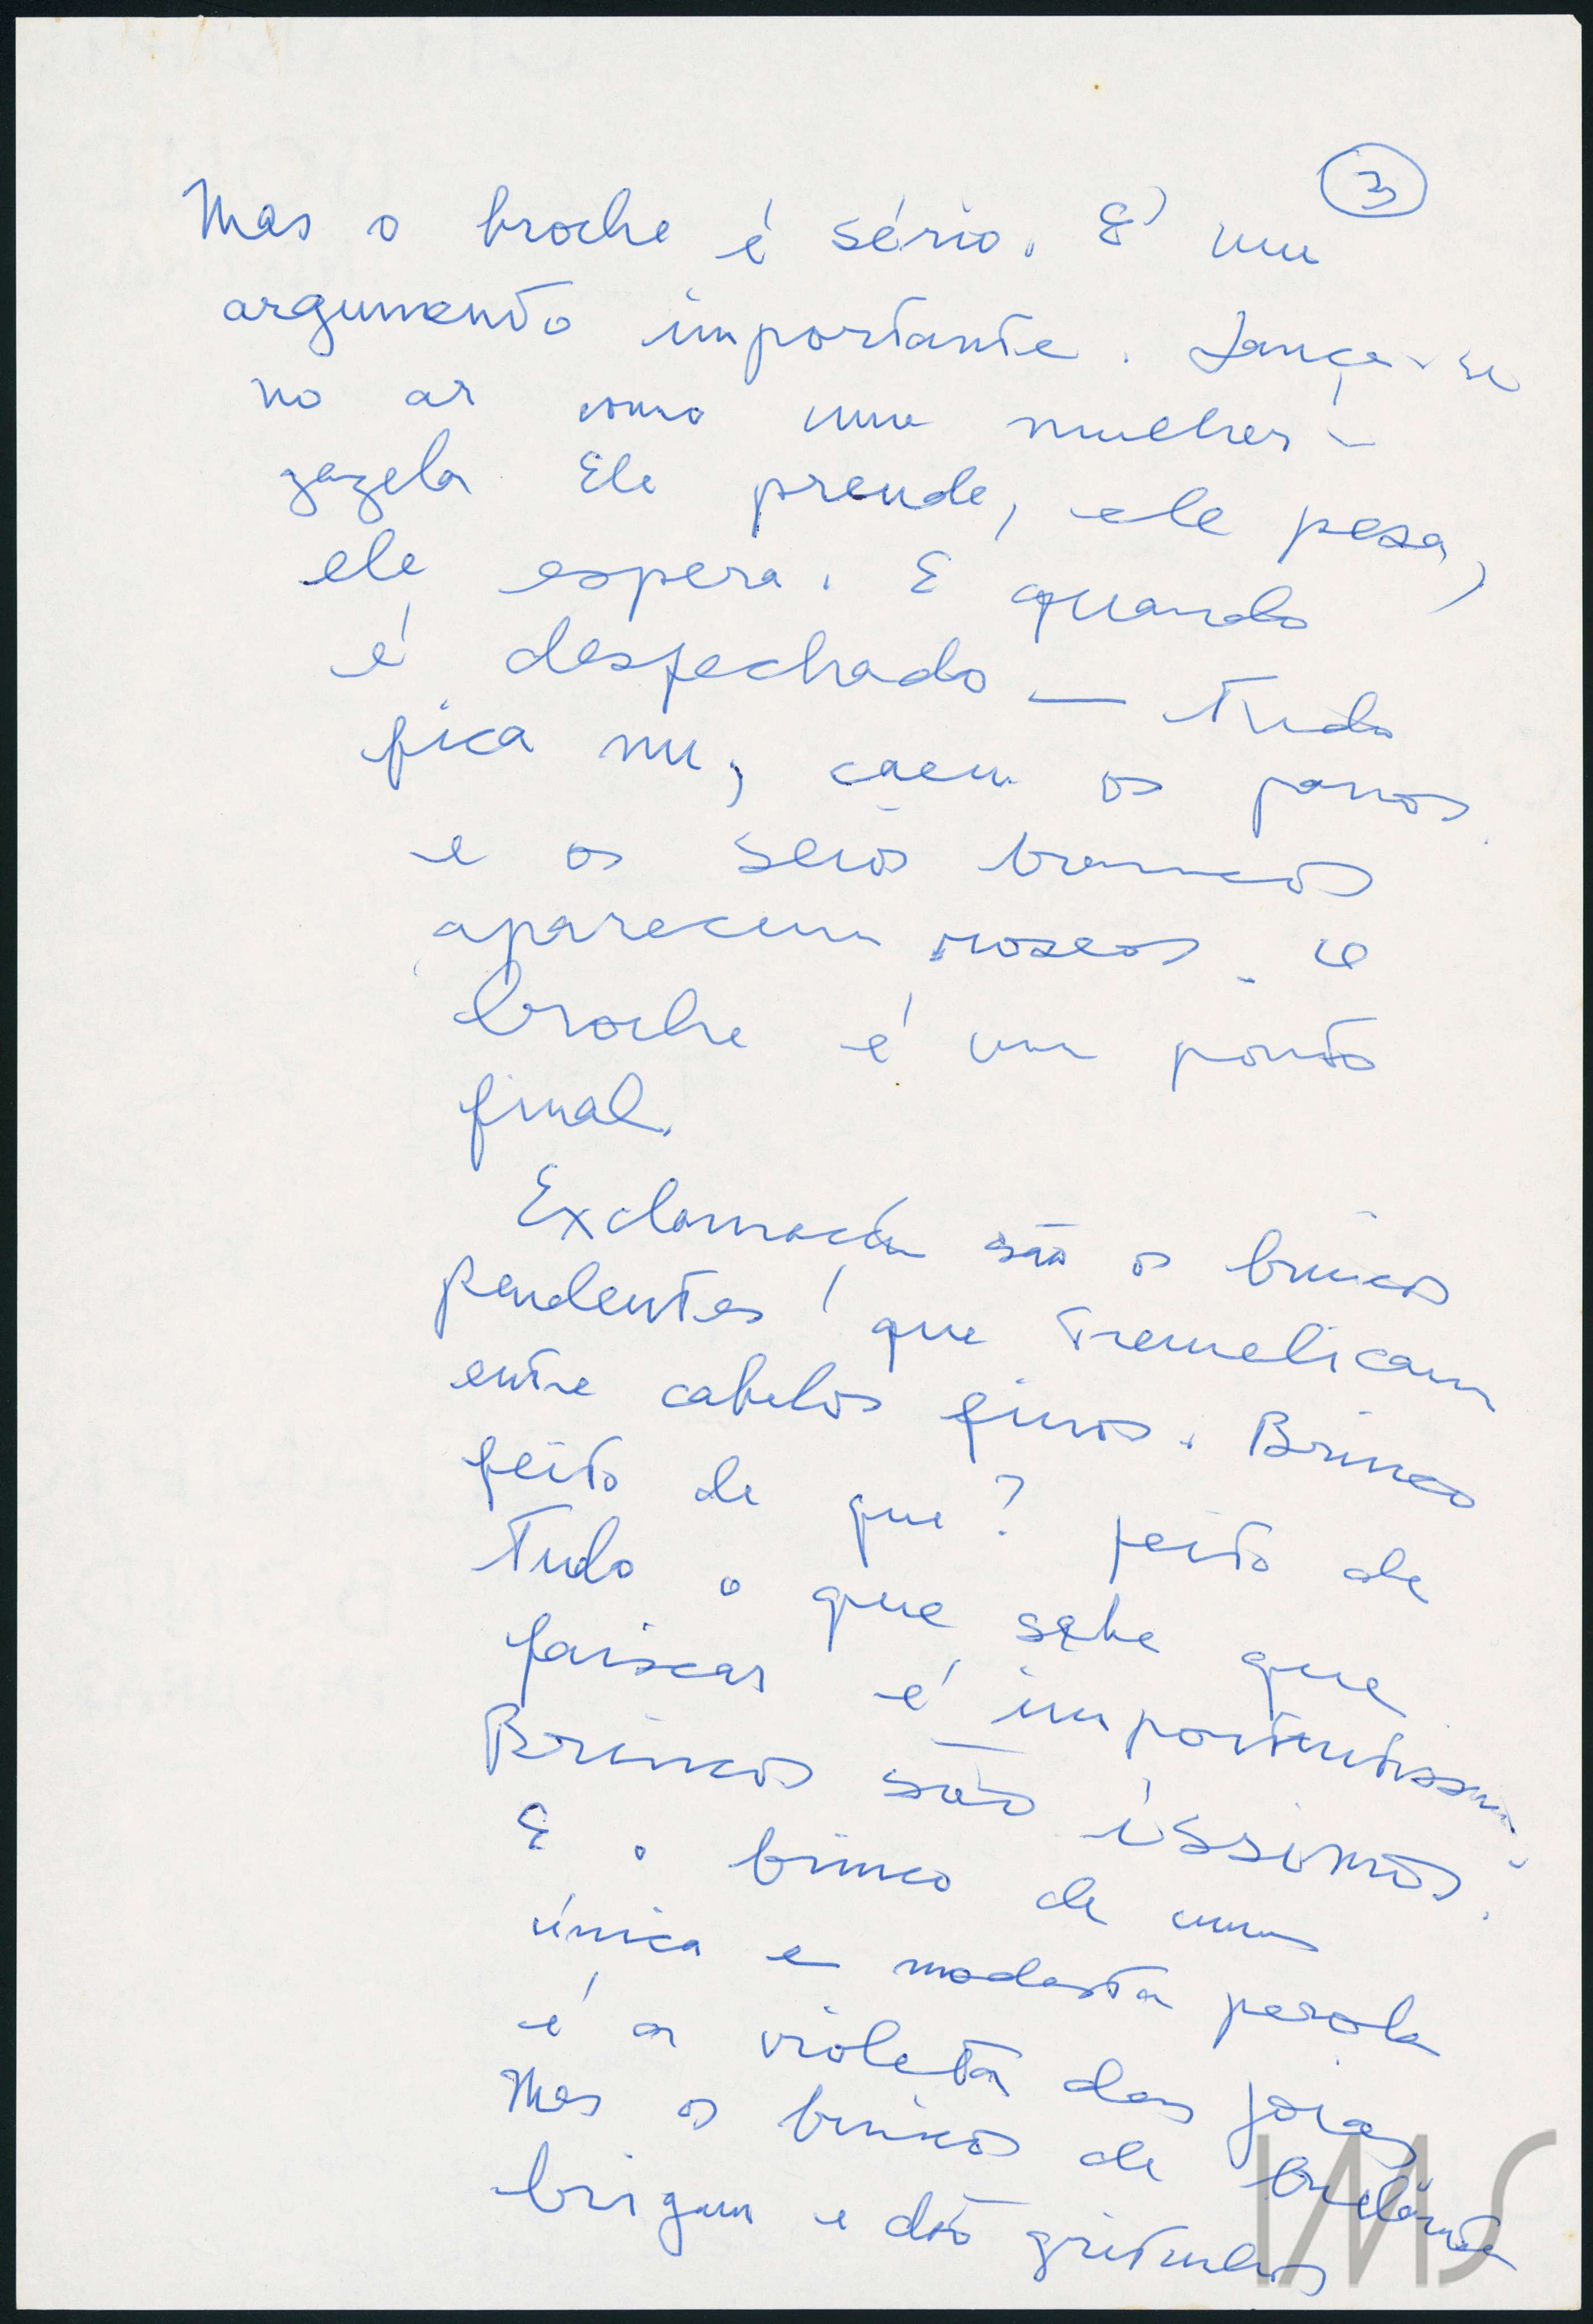 3
Mas o broche é sério. E' um
argumento importante. Lança-se
no ar como uma mulher-
gazela Ele prende, ele pesa,
ele espera. E quando
é desfechado — tudo
fica nu, caem os panos
e os seios brancos
aparecem roseos. O
broche é um ponto
final.
Exclamação são os brincos
pendentes que tremelicam
entre cabelos finos. Brinco
feito de que? feito de
tudo o que sabe que
faiscar é importantíssimo.
Brincos são íssimos.
E o brinco de uma
única e modesta perola
é a violeta das joias
Mas os brincos de brilhante
brigam e dão gritinhos
IMS